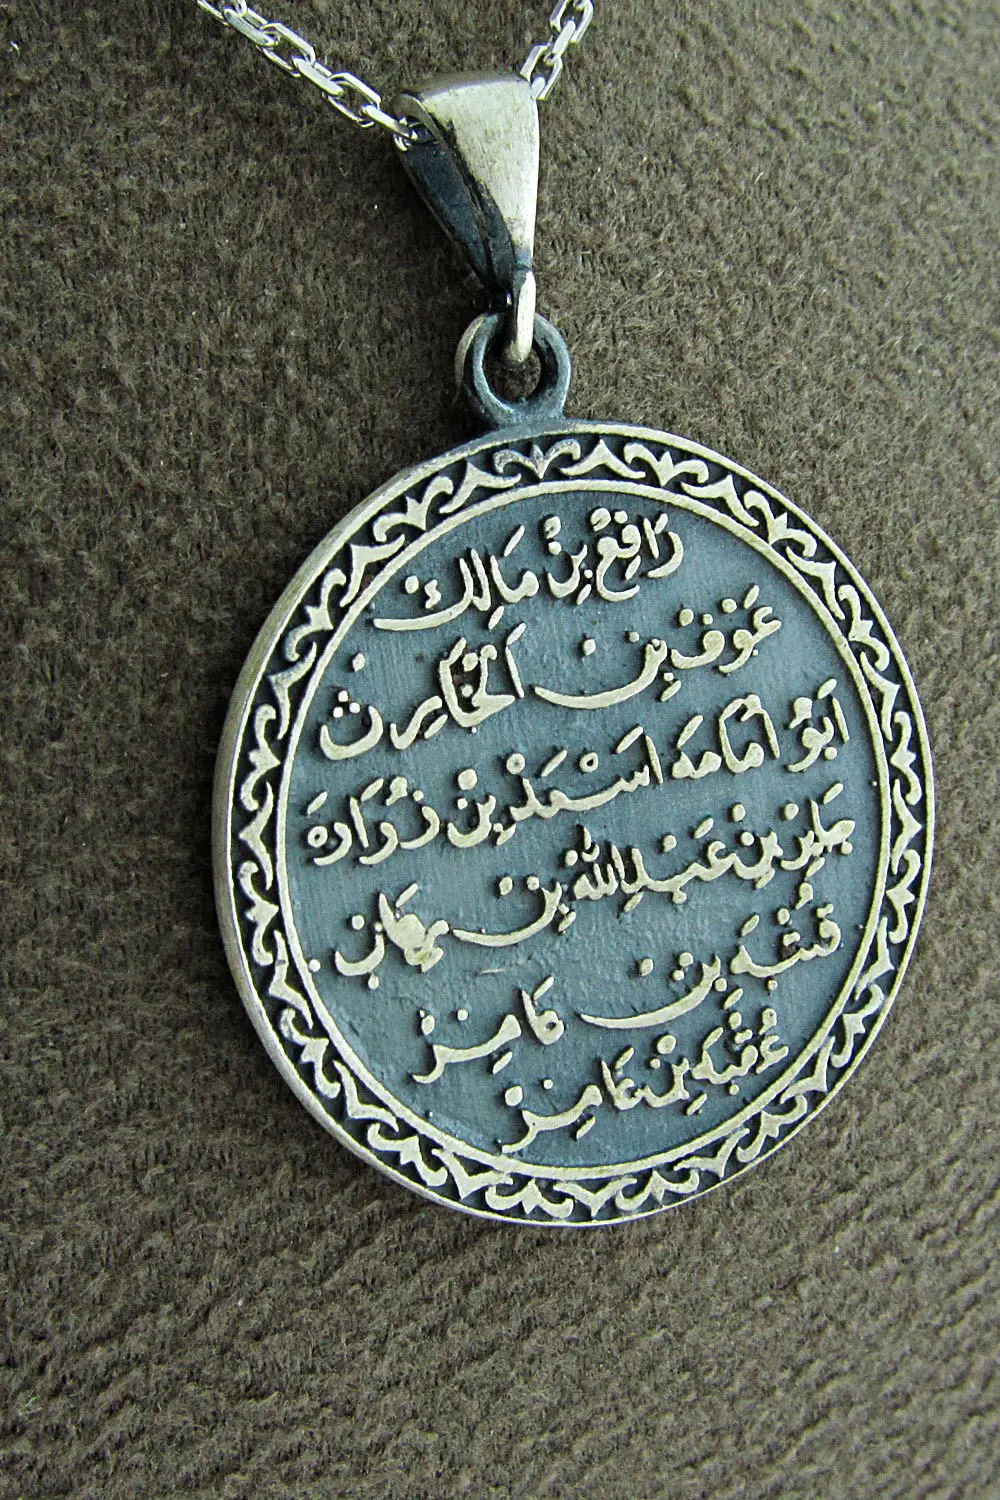 رَافِعْ بِنْ مَالِكْ
عَوْفْ بِنْ اَلْحَارِثْ
اَبُو اُمَامَه اَسْعَدْ بِنْ زُرَارَه
جَابِرْ بِنْ عَبْدِاللّٰه بِنْ
قُتْبَه بِنْ عَامِرْ
عُقْبَه بِنْ عَامِرْ